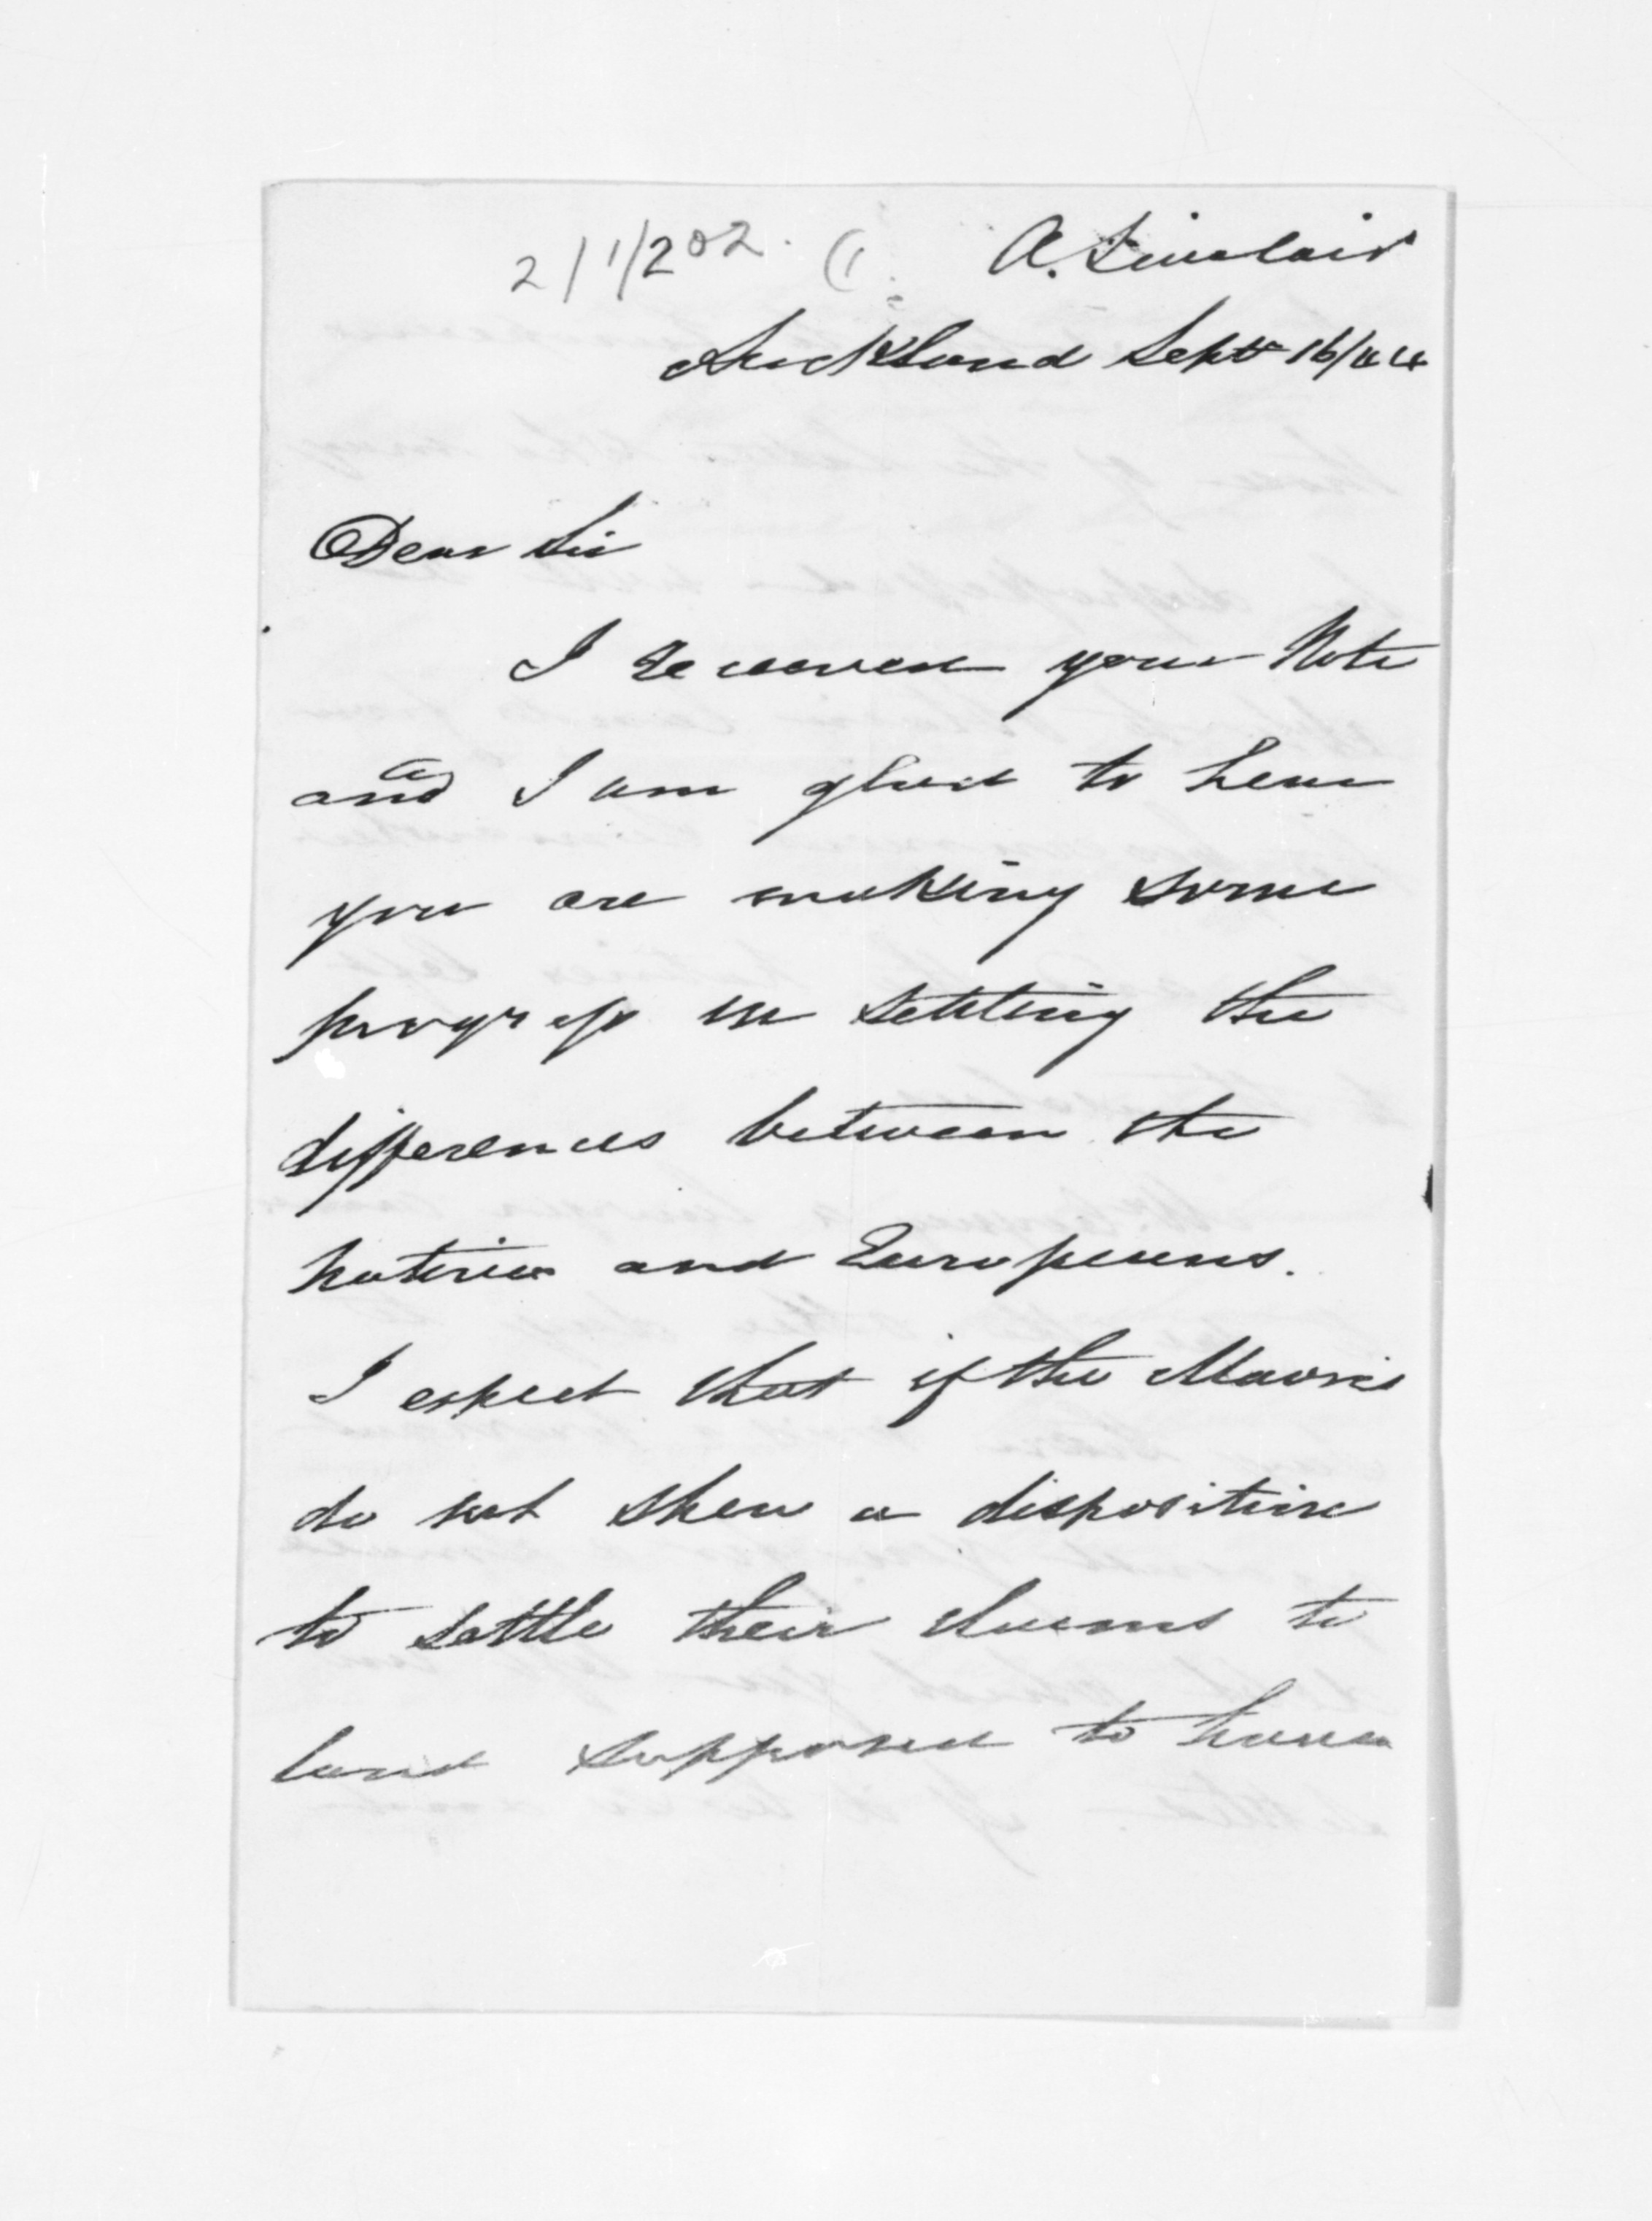 2/1/202. (1. A. Sinclair
Auckland Septr 16/44
Dear Sir
I received your Note
and I am glad to hear
you are making some
progress in settling the
differences between the
natives and Europeans.
I expect that if the Maoris
do not shew a disposition
to settle their claims to
land supposed to have